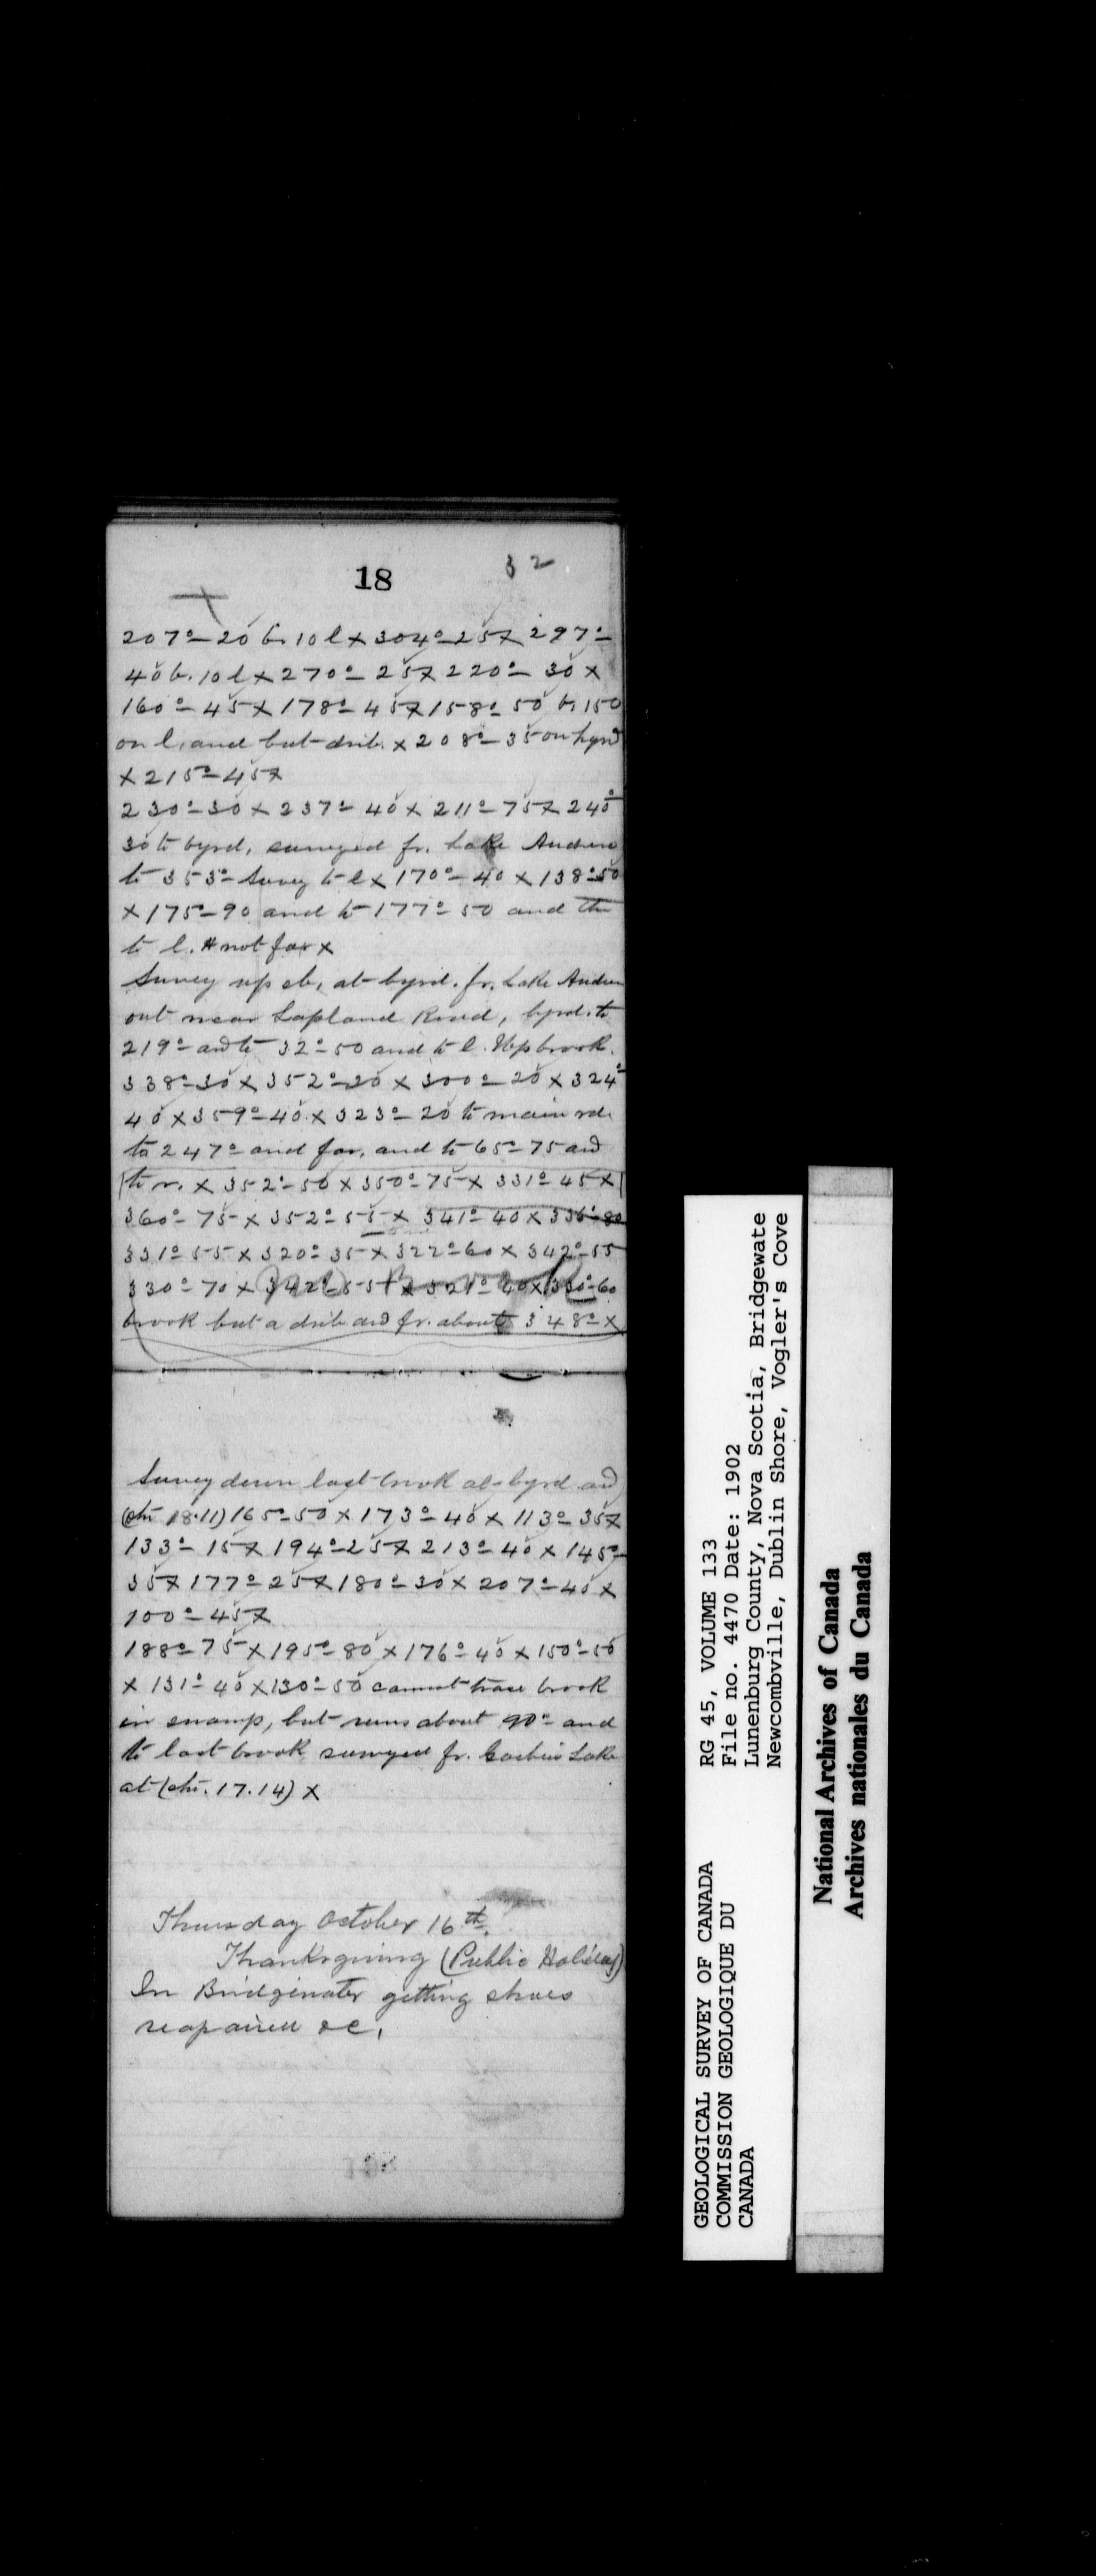 18
32
207°-20 br 10 l x 304°-25 x 297°-
40 b. 10 l x 270°-25 x 220°-30 x
160°-45 x 178°-45 x 158°-50 br 150
on l. and but drib. x 208°-35 on byrd
x 215°-45 x
230°-30 x 237°-40 x 211°-75 x 240°
30 to byrd, surveyed fr. Lake Andrew
to 353°- Survey to l x 170°-40 x 138°-50
x 175°-90 and to 177°-50 and
to l. not far x
Survey up at byrd. fr. Lake Andrew
out near Lapland Road, byrd. to
219°- and to 32°-50 and to l. Up brook.
338°-30 x 352°-20 x 300°-20 x 324°
40 x 359°-40 x 323°-20 to main rd.
to 247°- and far, and to 65°-75 and
to r. x 352°-50 x 350°-75 x 331°-45 x
360°-75 x 352°-55 x 341°-40 x 336°-80
331°-55 x 320°-35 x 322°-60 x 342°-55
330°-70 x 342°-55 x 321°-40 x 330°-60
brook but a drib and fr. about 348°- x
Survey down last brook at byrd and
(stn 18.11) 165°-50 x 173°-40 x 113°-35 x
133°-15 x 194°-25 x 213°-40 x 145°-
35 x 177°-25 x 180°-30 x 207°-40 x
100°-45 x
188°-75 x 195°-80 x 176°-40 x 150°-50
x 131°-40 x 130°-50 cannot trace brook
in swamp, but runs about 90°- and
to last brook surveyed fr. Lake
at (stn. 17.14) x
Thursday October 16th.
Thanksgiving (Public Holiday)
In Bridgewater getting shoes
repaired &c.
GEOLOGICAL SURVEY OF CANADA
COMMISSION GEOLOGIQUE DU
CANADA
RG 45, VOLUME 133
File no. 4470 Date: 1902
Lunenburg County, Nova Scotia, Bridgewate
Newcombville, Dublin Shore, Vogler's Cove
National Archives of Canada
Archives nationales du Canada